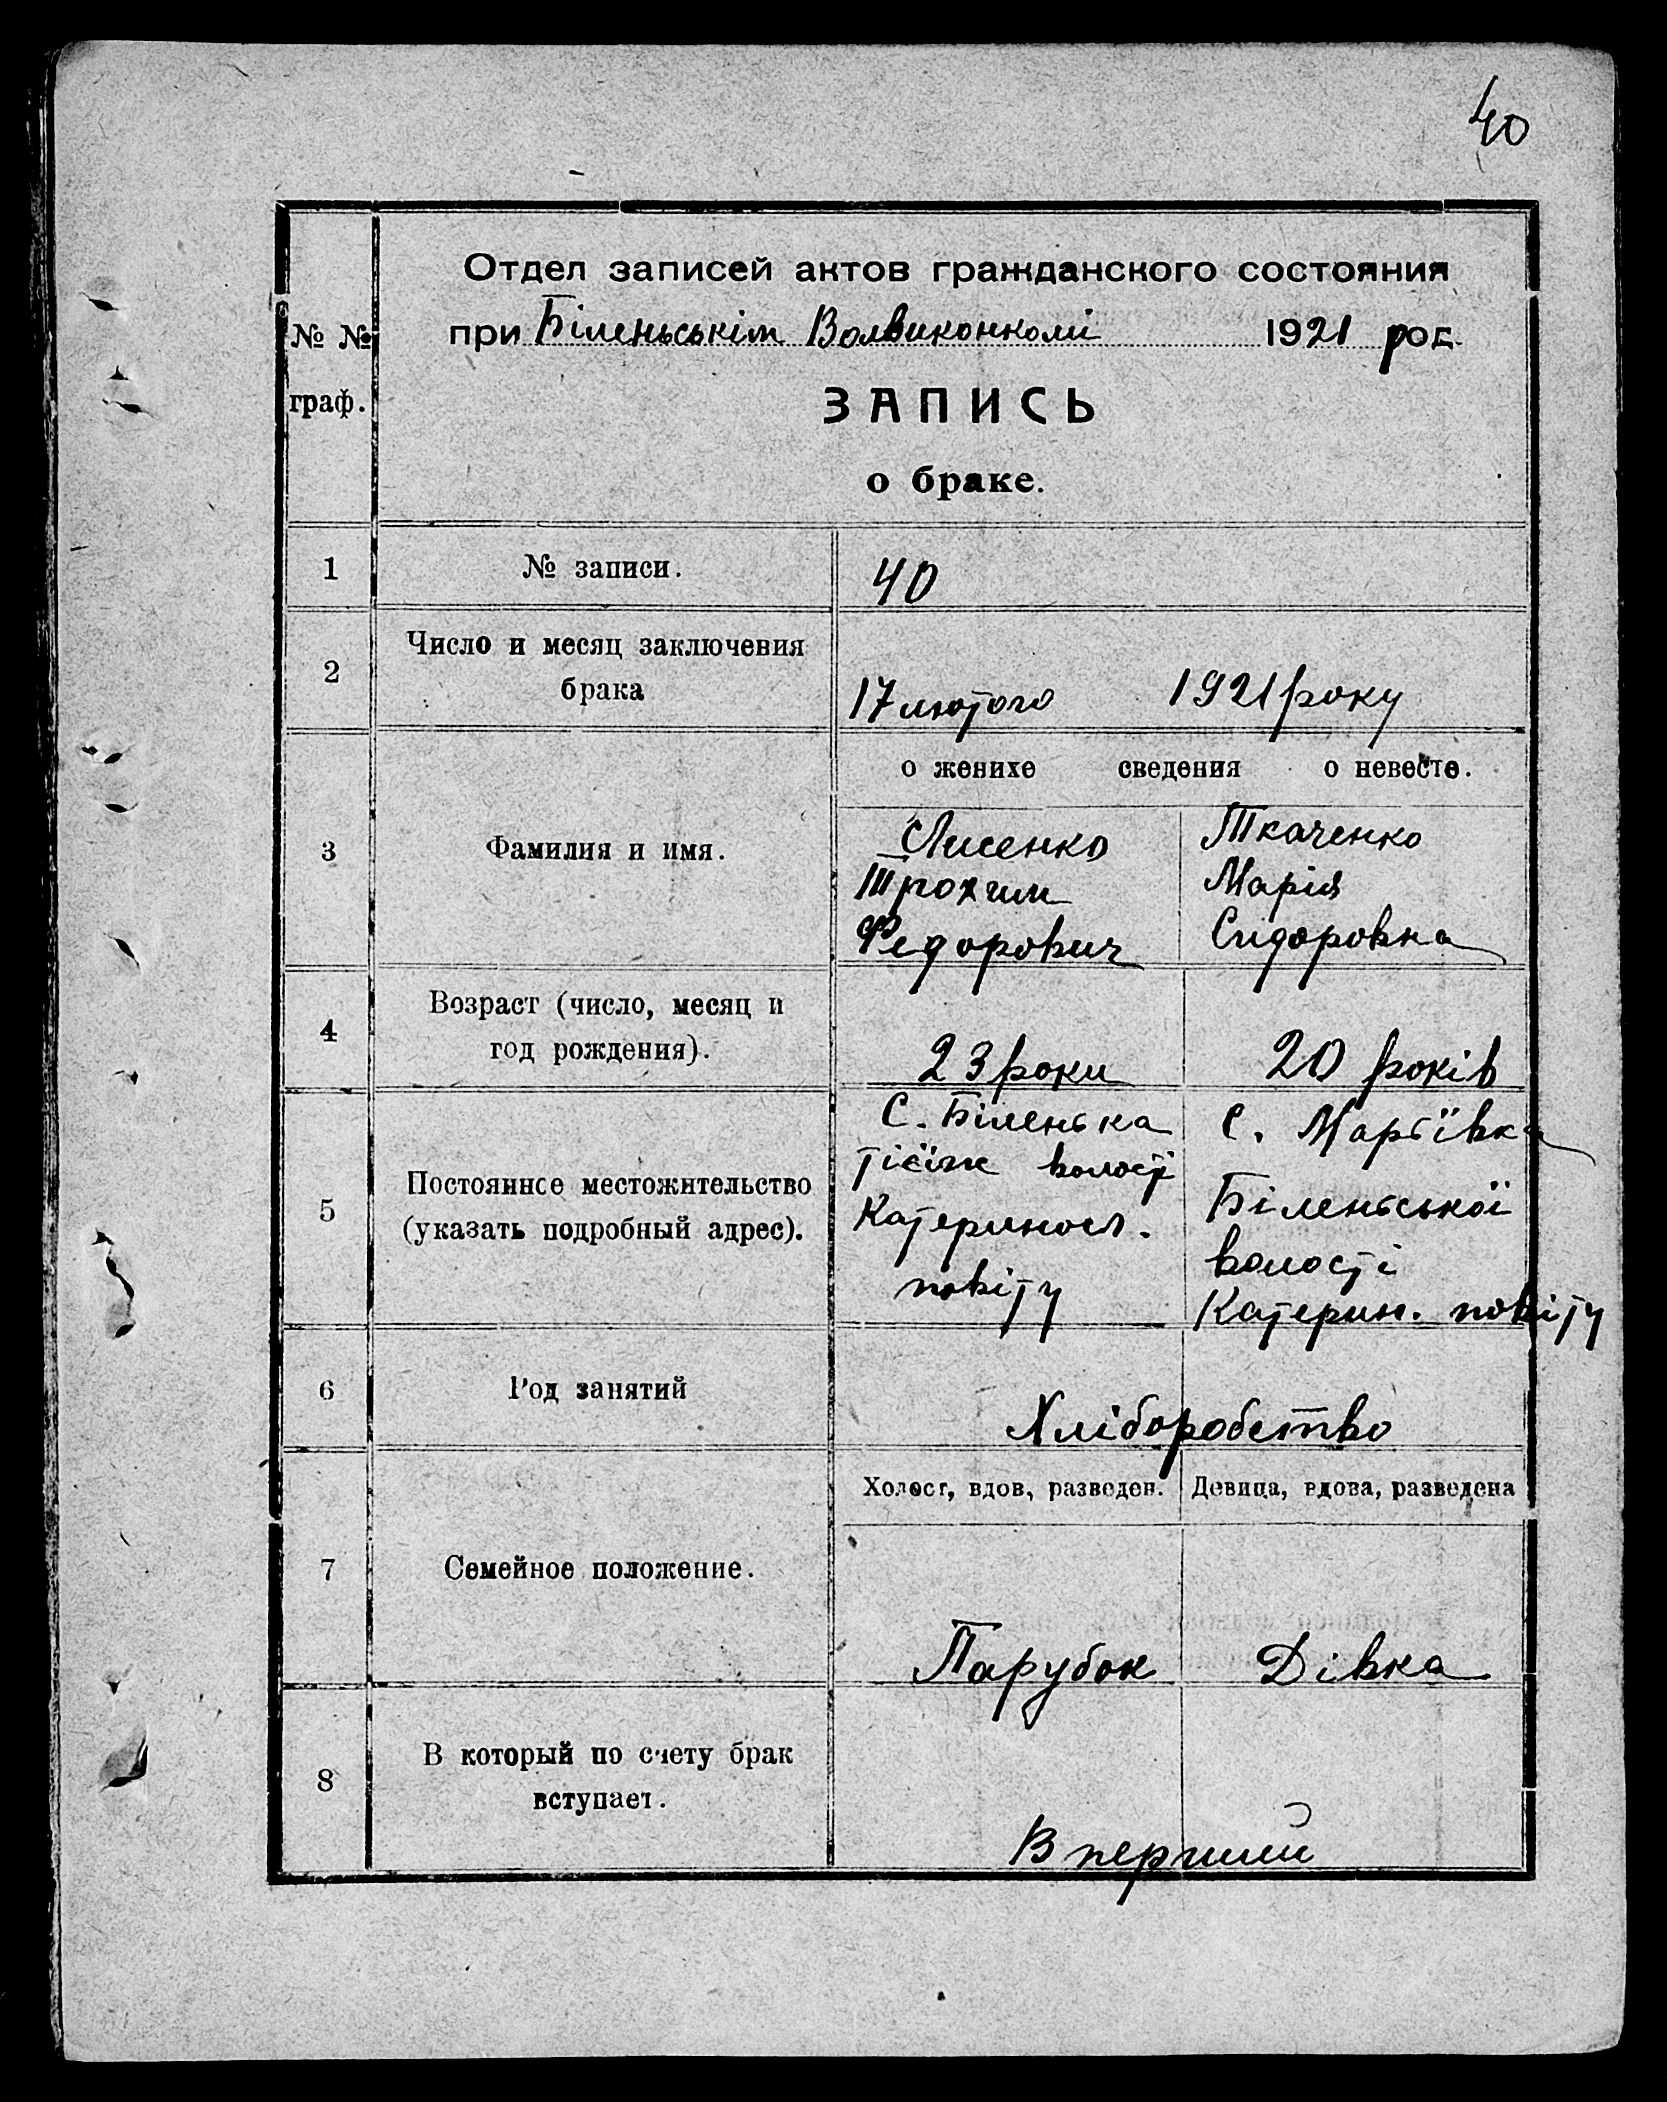 40
Отдел записей актов гражданского состояния
при Біленьськім Волвиконкомі 1921 род.
№ №
граф.
ЗАПИСЬ
о браке.
1 № записи. 40
2 Число и месяц заключения
брака
17 лютого 1921 року
о женихе сведения о невесте.
3 Фамилия и имя.
Лисенко
Трохим
Федорович
Ткаченко
Марія
Сидоровна
4 Возраст (число, месяц и
год рождения).
23 роки 20 років
5 Постоянное местожительство
(указать подробный адрес).
С. Біленька
тієїж волості
Катериносл.
повіту
С. Марївка
Біленьської
волості
Катерин. повіту
6 Род занятий
Хліборобство
Холост, вдов, разведен. Девица, вдова, разведена
7 Семейное положение.
Парубок Дівка
8 В который по счету брак
вступает.
В перший